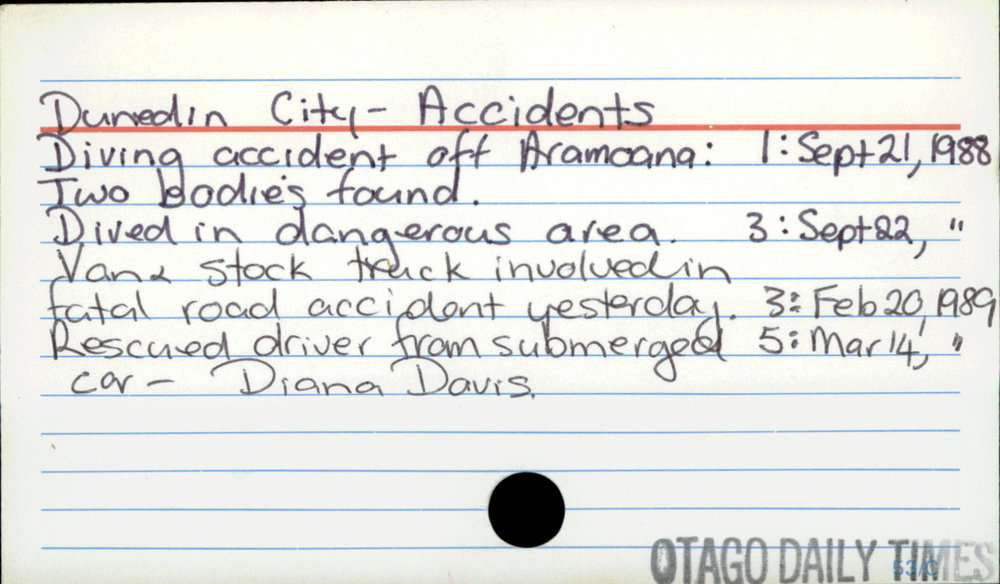 Dunedin City - Accidents
Diving accident off Aramoana: 1: Sept 21, 1988
Two bodies found.
Dived in dangerous area. 3: Sept 22, "
Van & stock truck involved in
fatal road accident yesterday. 3: Feb 20, 1989
Rescued driver from submerged 5: Mar 14, "
car - Diana Davis.
OTAGO DAILY TIMES
53/0